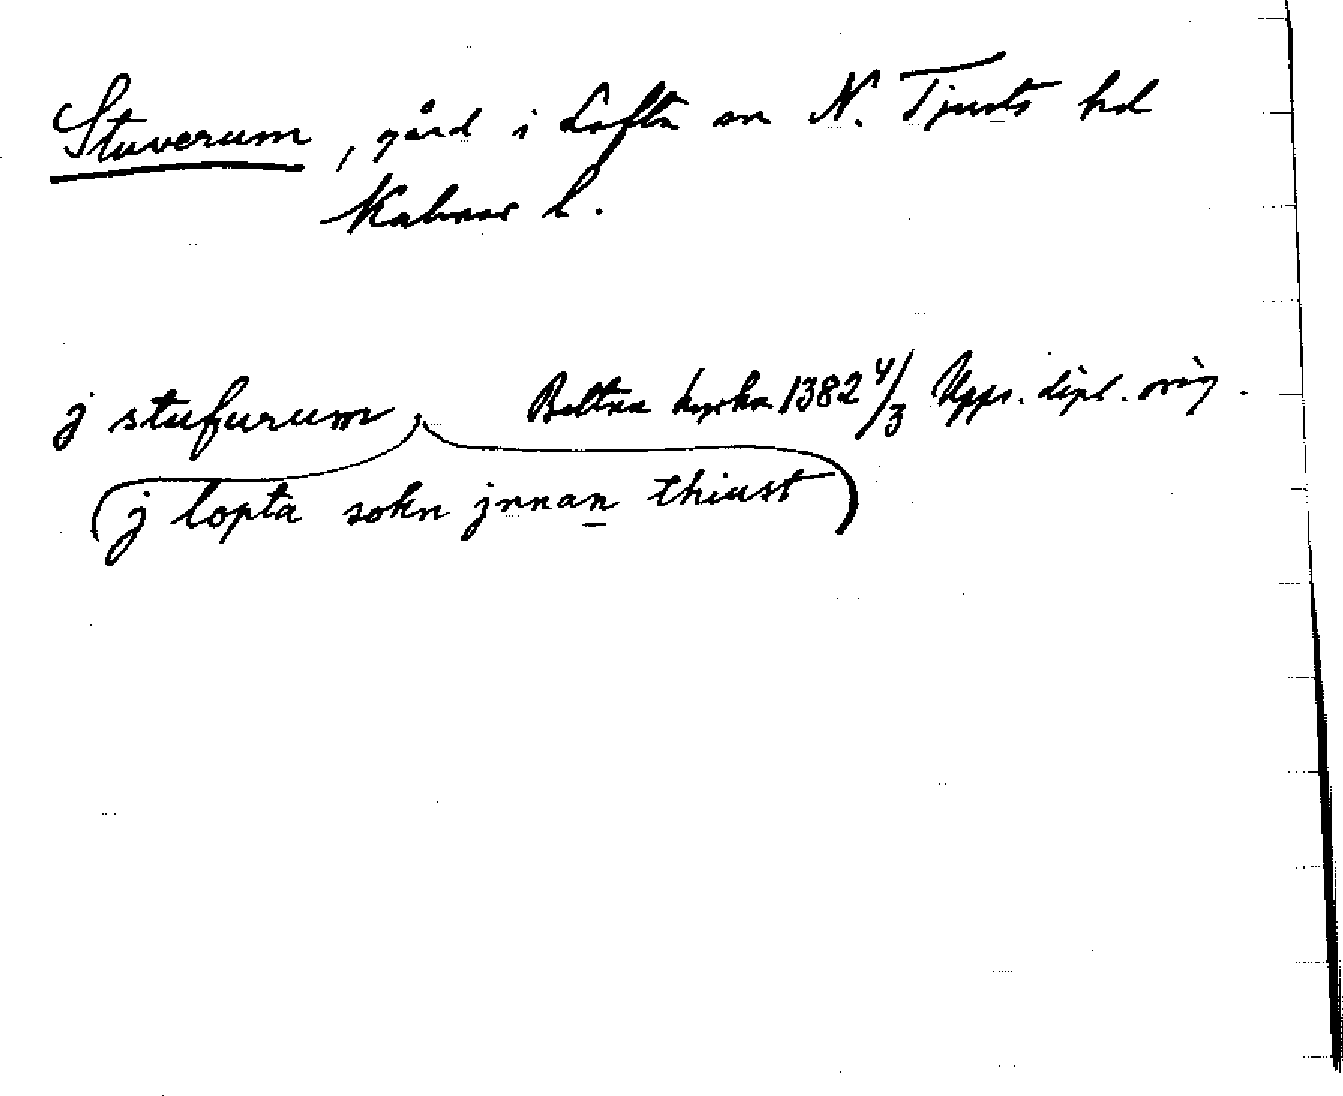 Stuverum, gård i Lofta sn N. Tjusts hd
Kalmar l.
j stufurum, Beltna kyrka 1382 4/3 Upps. dipl. orig.
(j lopta sokn jnnan thiust)